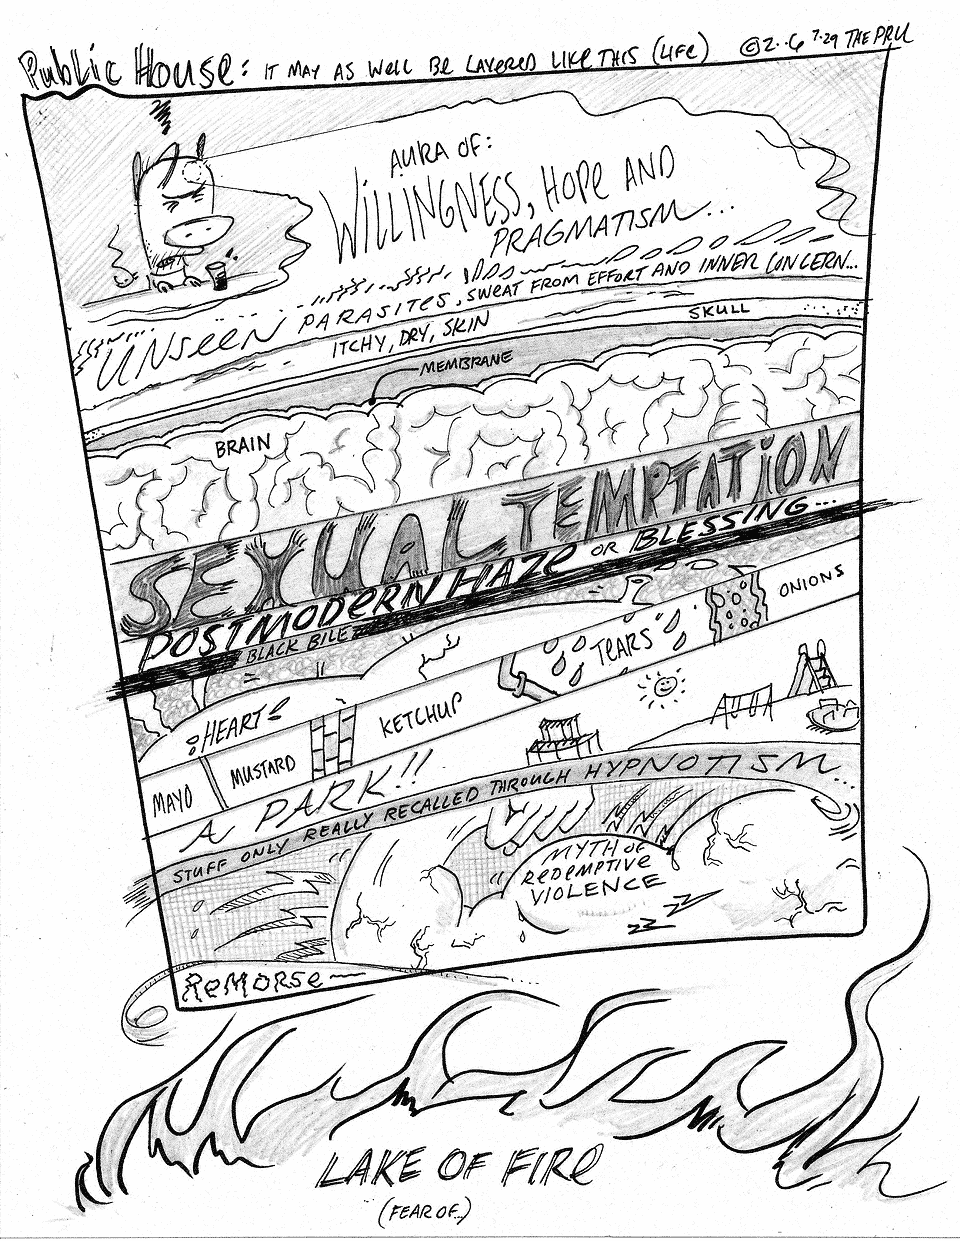 Public House: IT MAY AS WELL BE LAYERED LIKE THIS (LIFE) ©2..6 7.29 THE PRU
AURA OF:
WILLINGNESS, HOPE AND
PRAGMATISM...
UNSEEN PARASITES, SWEAT FROM EFFORT AND INNER CONCERN...
ITCHY, DRY, SKIN
SKULL
MEMBRANE
BRAIN
SEXUAL TEMPTATION
POSTMODERN HAZE OR BLESSING...
BLACK BILE
HEART
MAYO
MUSTARD
KETCHUP
TEARS
ONIONS
A PARK!!
STUFF ONLY REALLY RECALLED THROUGH HYPNOTISM...
MYTH OF
REDEMPTIVE
VIOLENCE
ZZ
ZZZ
REMORSE—
LAKE OF FIRE
(FEAR OF..)